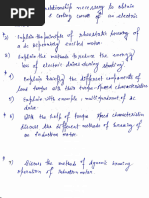 relationship necessary to obtain
& cooling curves of an electric
3) Explain the principle of rheostatic braking of
a dc separately excited motor.
4) Explain the methods to reduce the energy
loss of electric drives during starting.
Explain briefly the different components of
load torque with their torque-speed characteristics
5) Explain with example: multiquadrant of dc
drive.
6) With the help of torque speed characteristics
discuss the different methods of braking of
an Induction motor.
7) Discuss the methods of dynamic braking
operation of Induction motor.